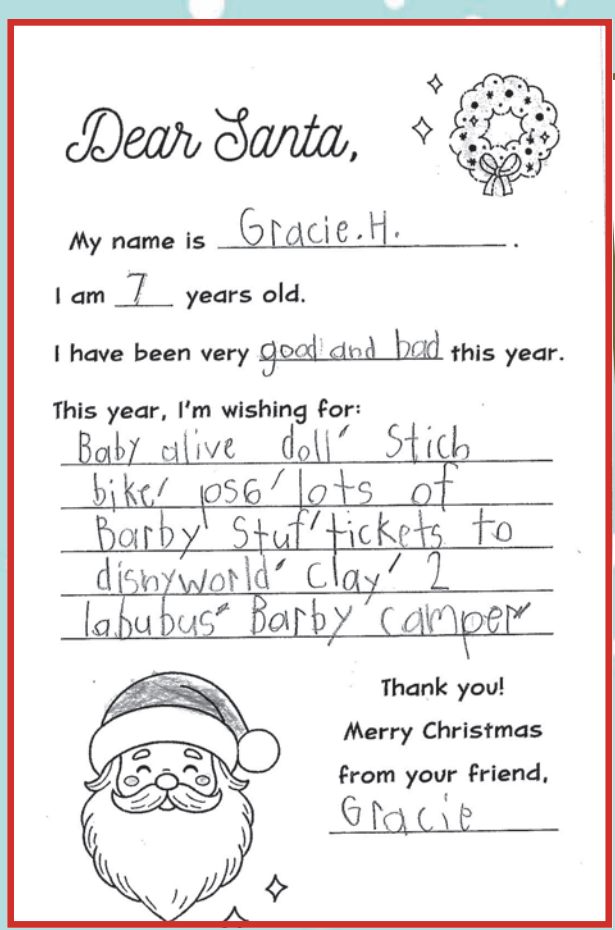 Dear Santa,
My name is Gracie.H. .
I am 7 years old.
I have been very good and bad this year.
This year, I'm wishing for:
Baby alive doll' Stich
bike' ps6' lots of
Barby' Stuf' tickets to
disnyworld' clay' 2
labubus' Barby camper
Thank you!
Merry Christmas
from your friend,
Gracie